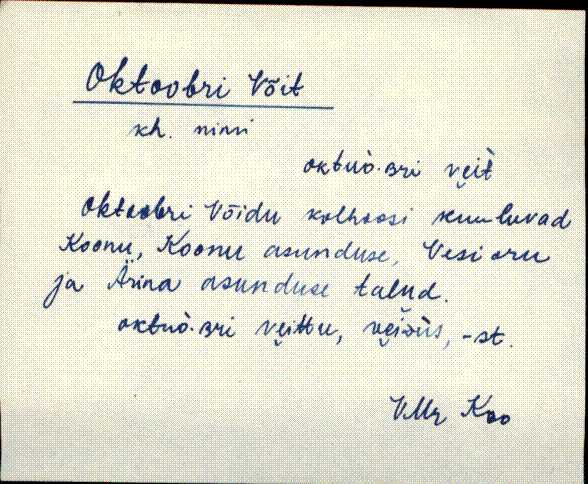 Oktoobri Võit
kh. nimi
oktuò·ʙri vẹit̀
Oktoobri Võidu kolhoosi kuuluvad
Koonu, Koonu asunduse, Vesioru
ja Ärina asunduse talud.
oktuò·ʙri vẹittu, -st.
VMr Koo